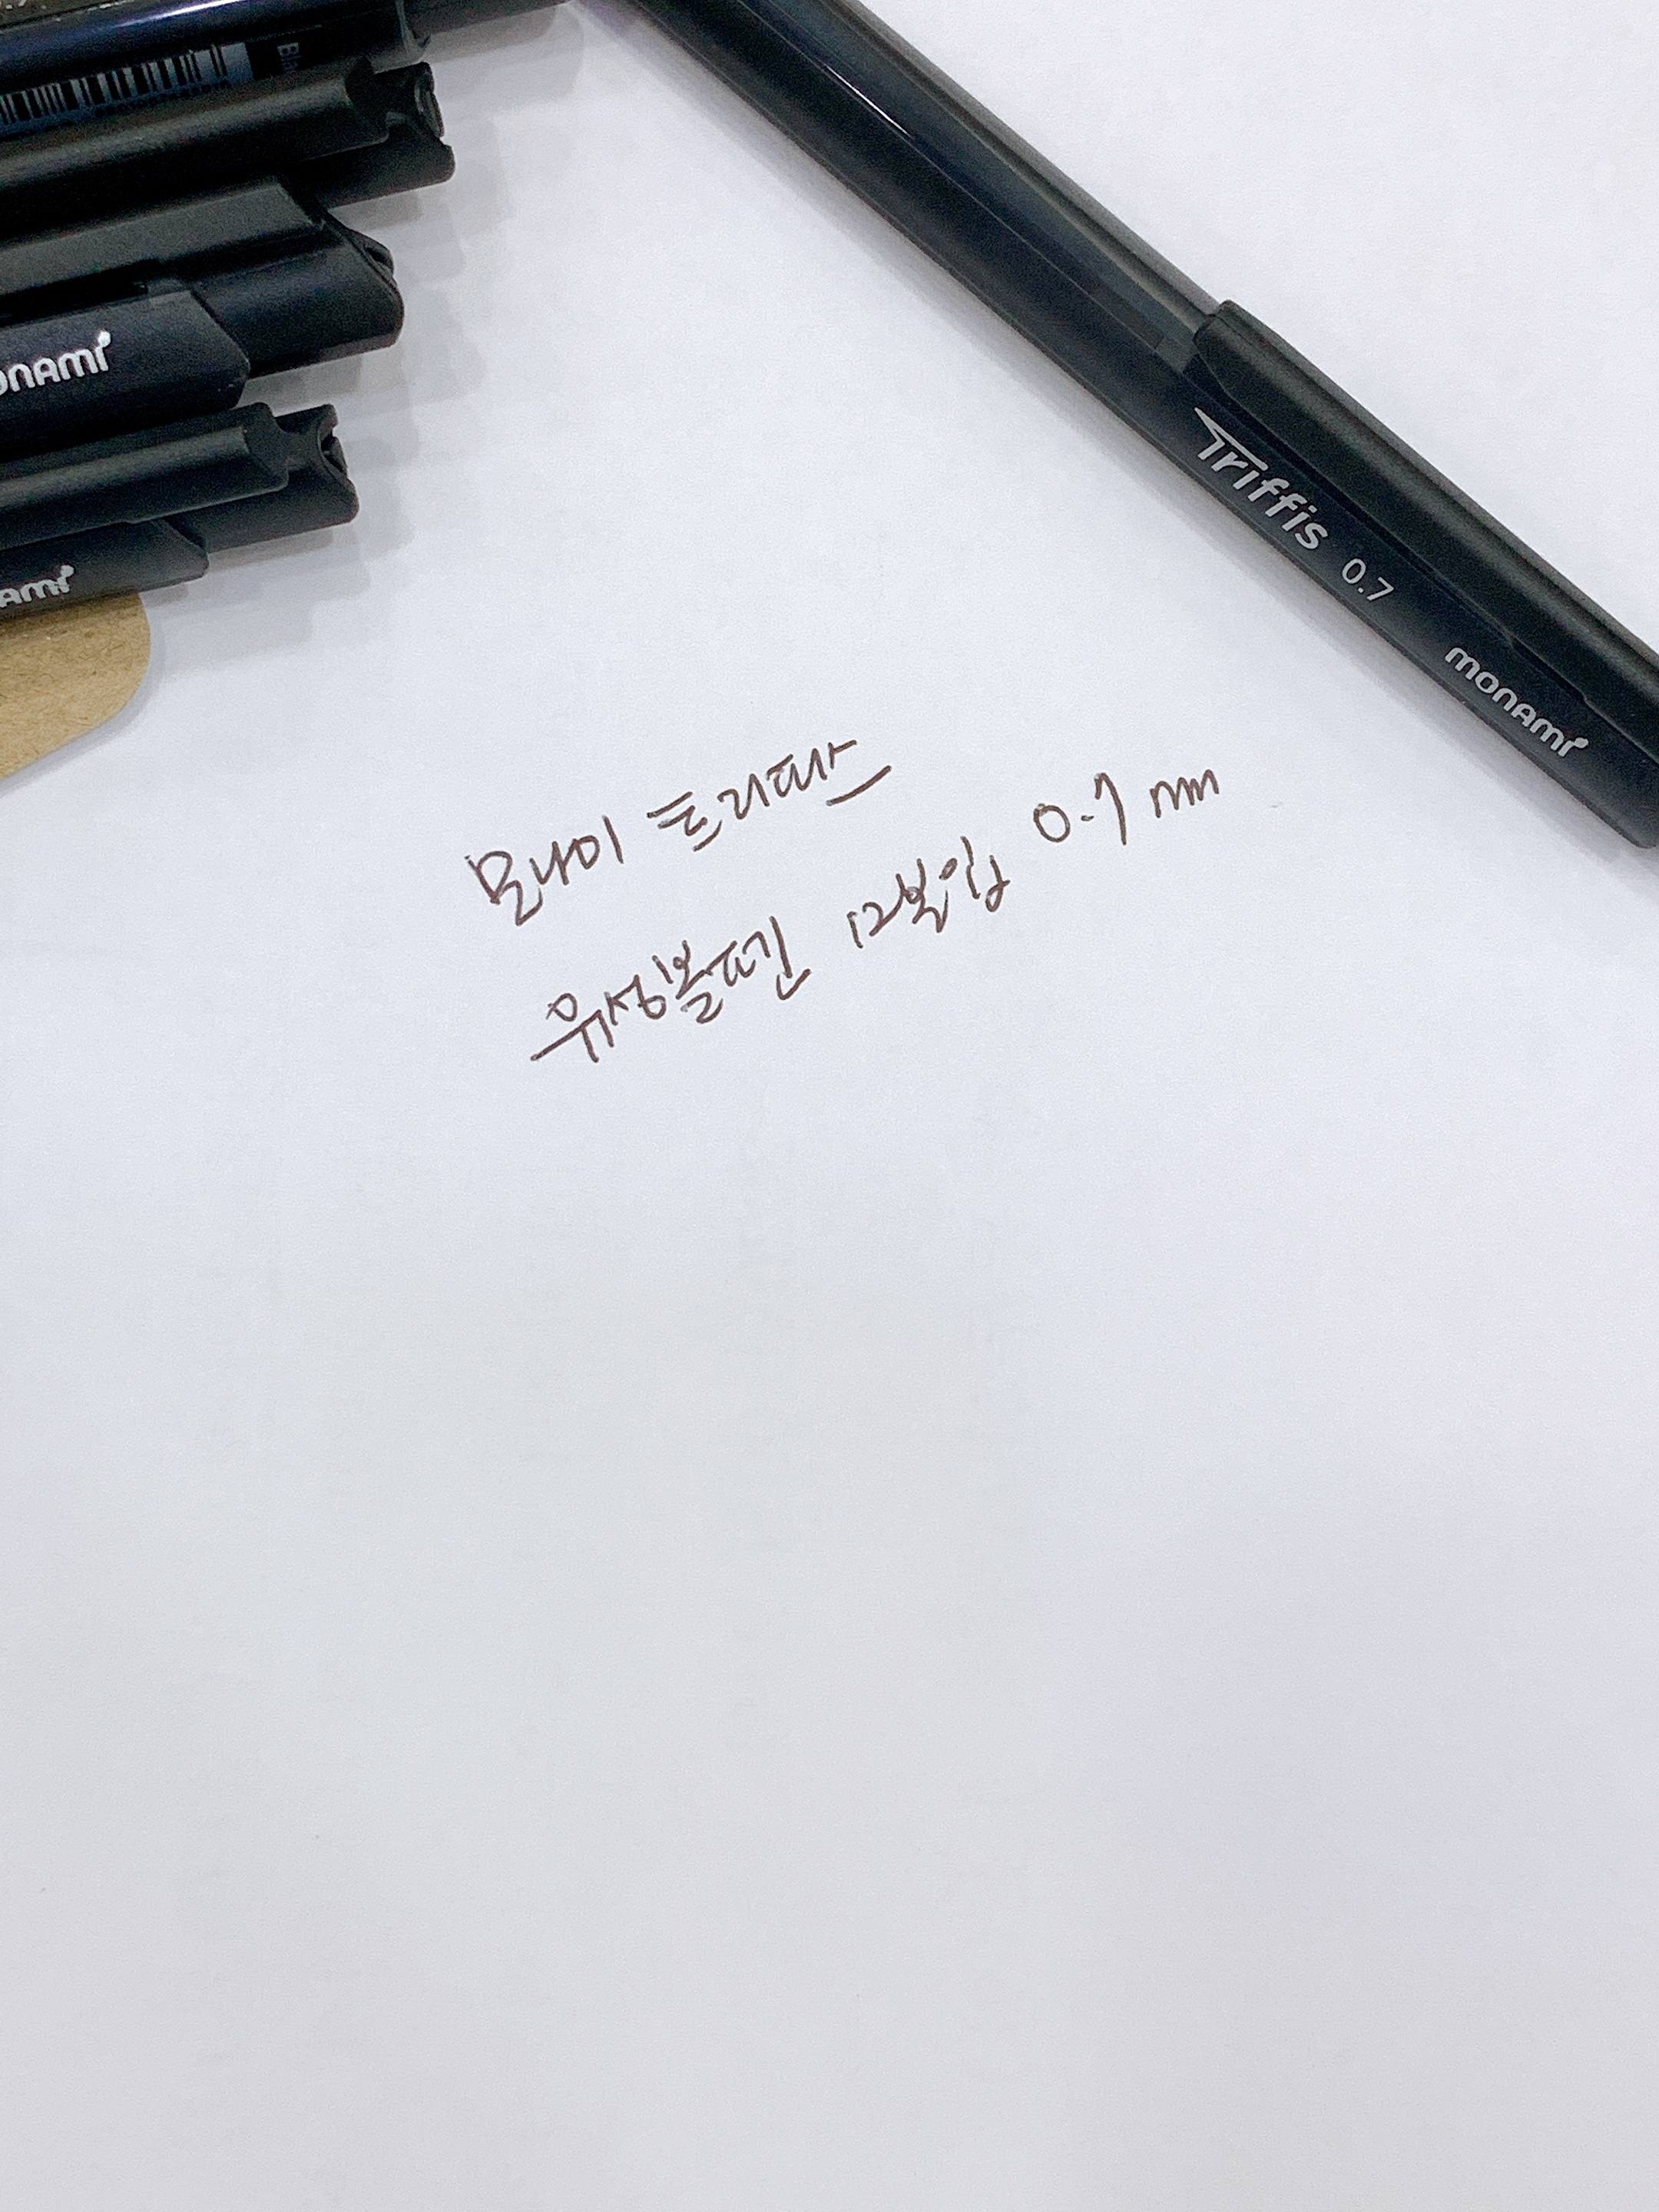 Bl
onami
ami
Triffis 0.7 monami
모나미 트리피스
유성볼펜 12본입 0.7 mm